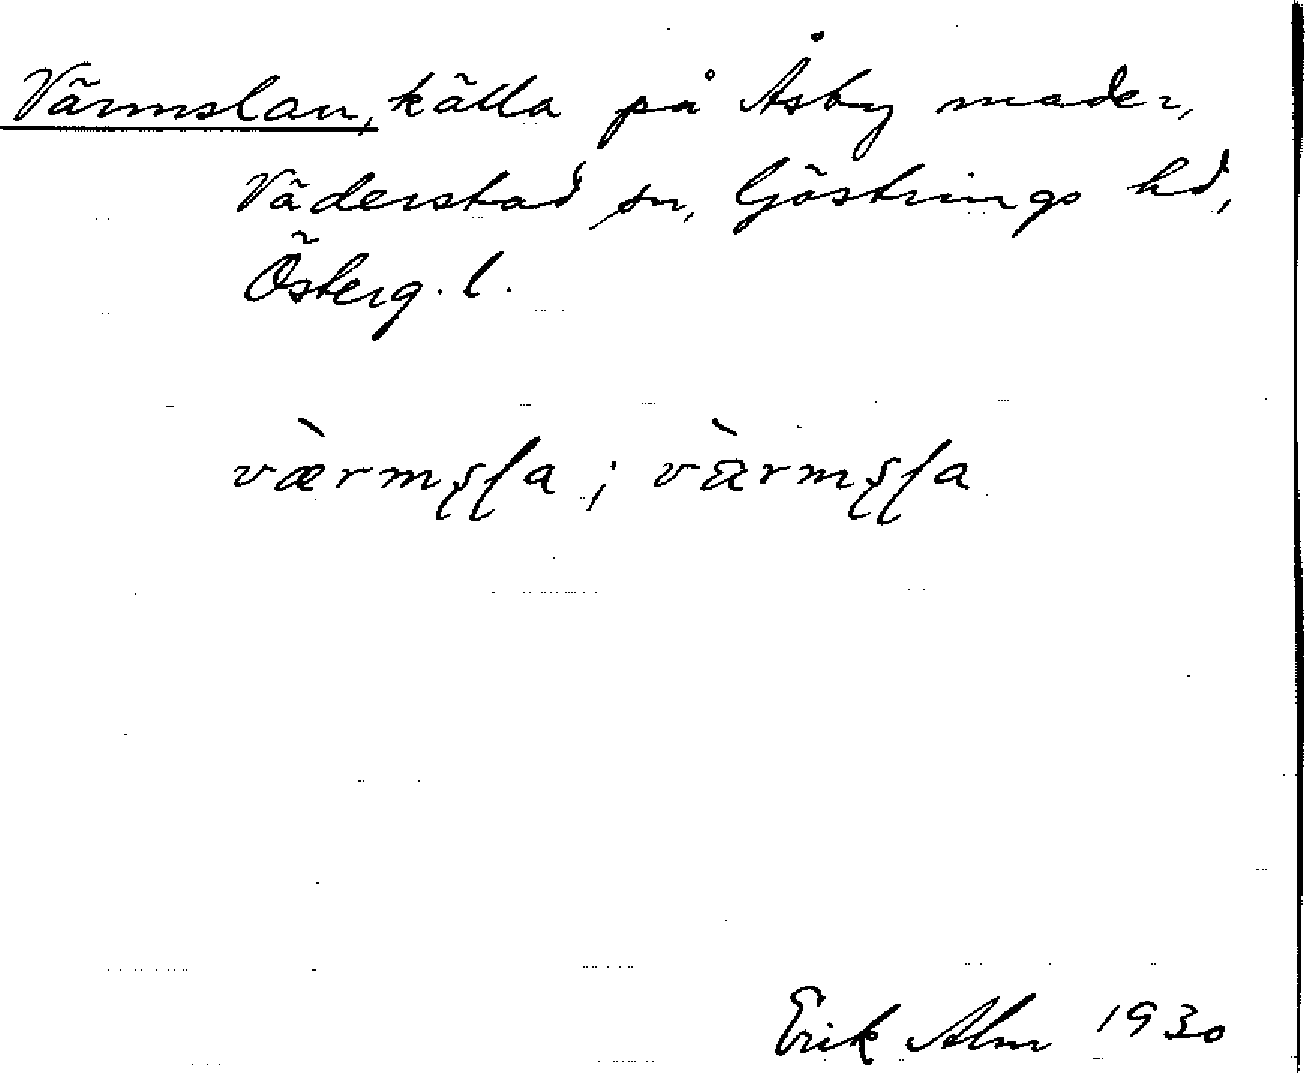 Värmslan, källa på Åsby mader,
Väderstad sn, Göstrings hd,
Österg. l.
Erik Alm 1930